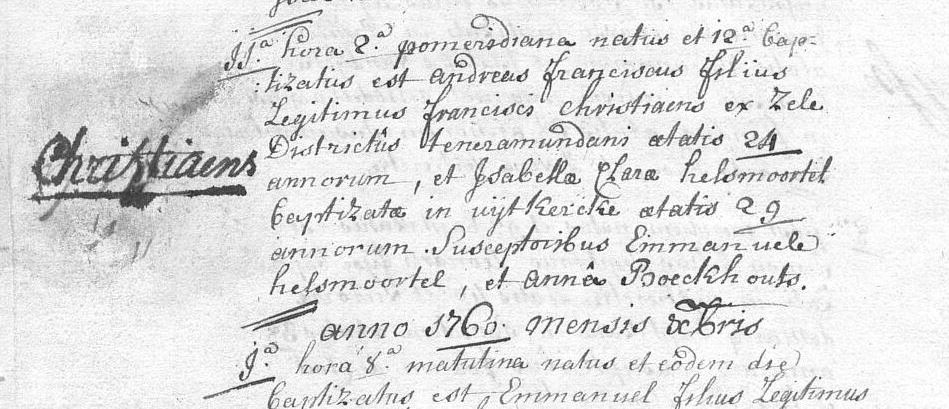 11.ª hora 2.ª pomeridiana natus et 12.ª bap-
:tizatus est andreas franciscus filius
Legitimus francisci christiaens ex Zele
Christiaens
Districtûs teneramundani ætatis 24
annorum, et Isabellæ Claræ helsmoortel
baptizatæ in uÿtkercke ætatis 29
annorum. Susceptoribus Emmanuele
helsmoortel, et annâ Boeckhouts.
anno 1760. mensis Xbris
1.ª hora 8.ª matutina natus et eôdem die
baptizatus est Emmanuel filius Legitimus